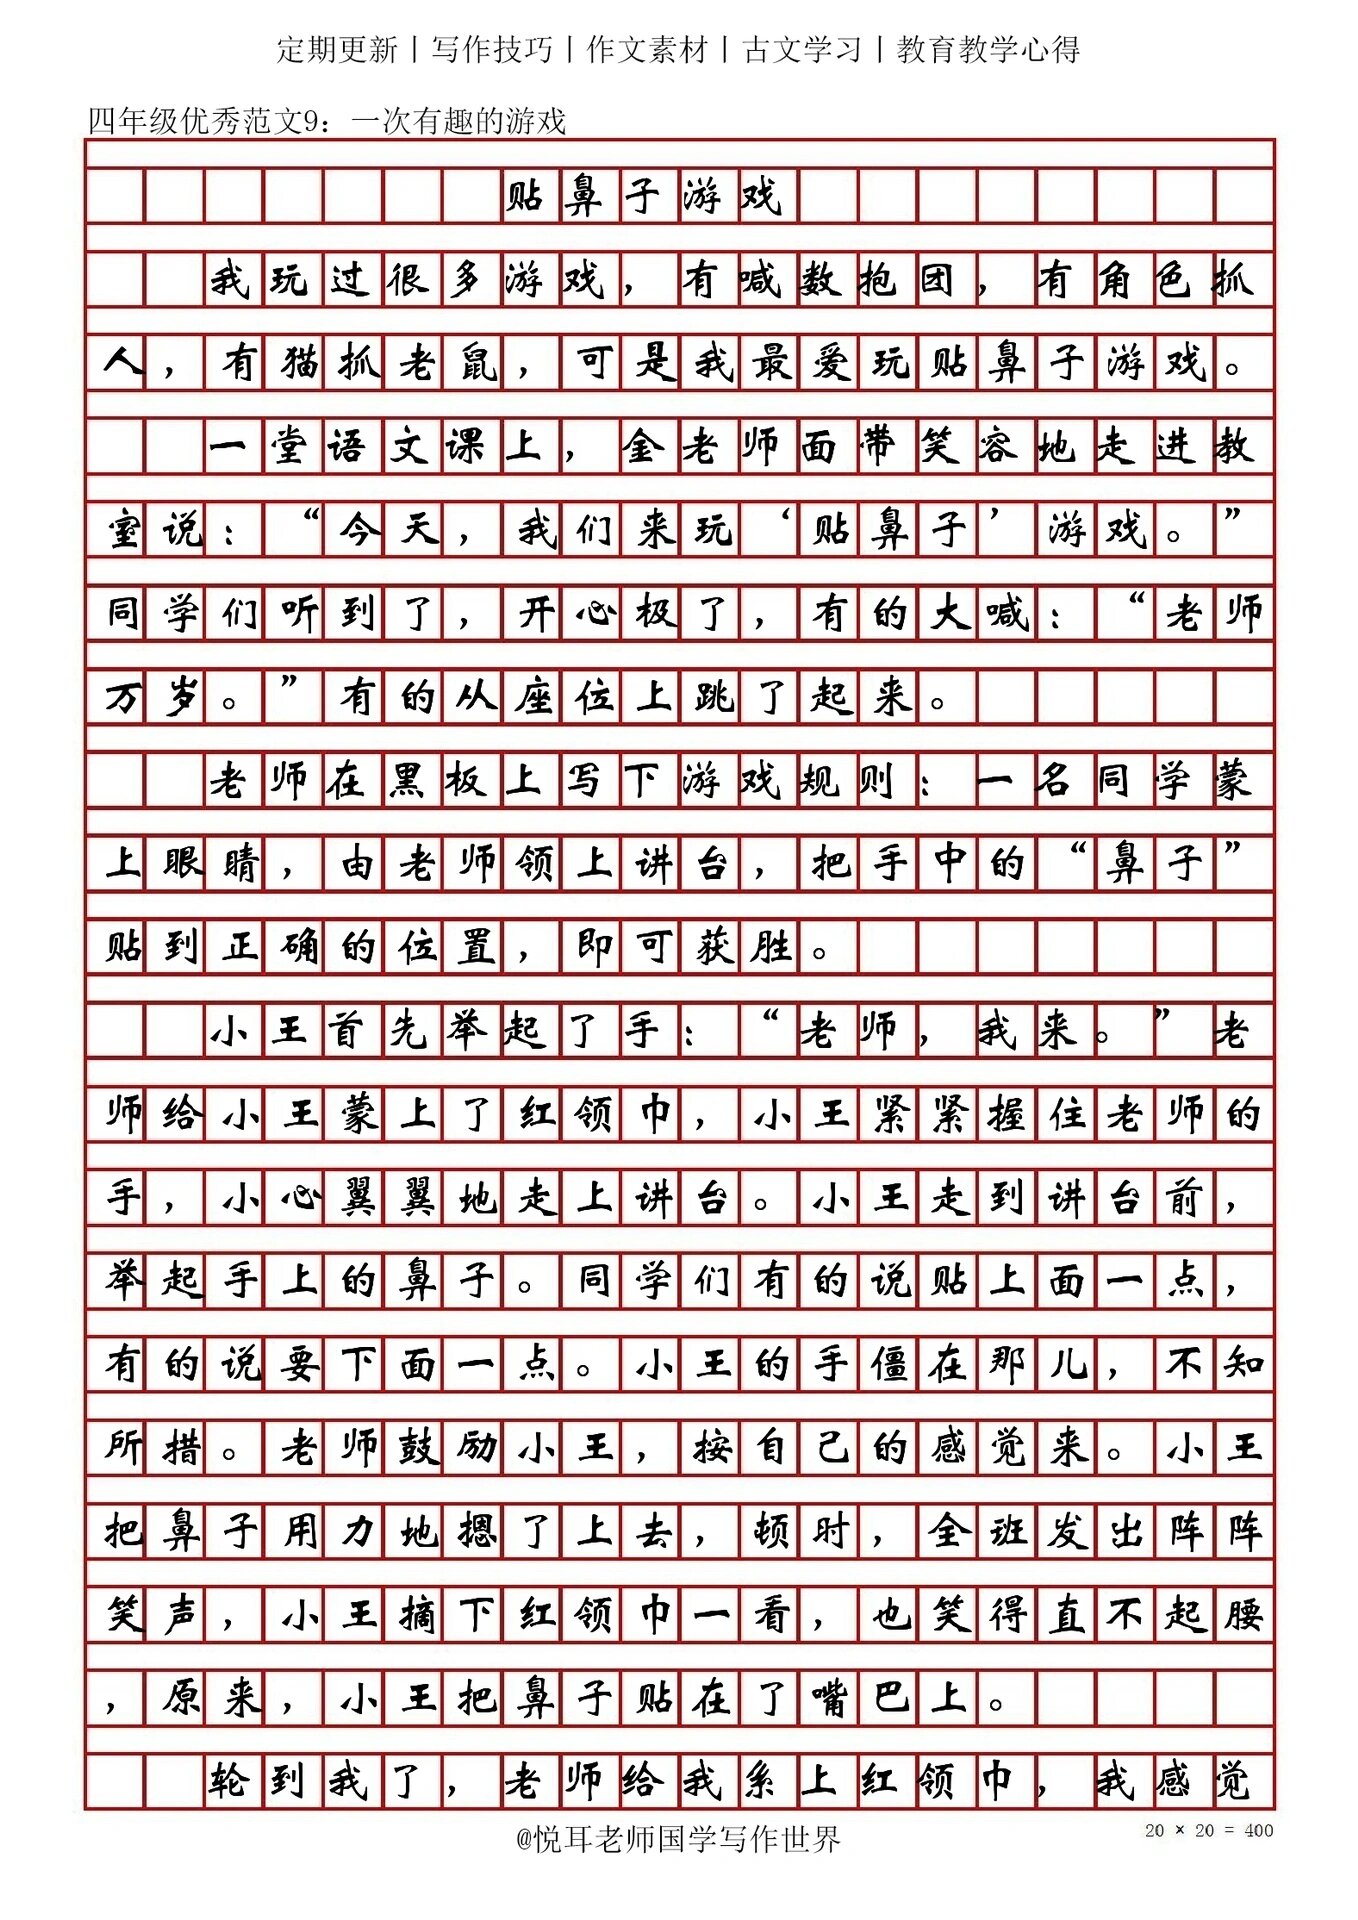 定期更新丨写作技巧丨作文素材丨古文学习丨教育教学心得
四年级优秀范文9：一次有趣的游戏
贴鼻子游戏
我玩过很多游戏，有喊数抱团，有角色抓
人，有猫抓老鼠，可是我最爱玩贴鼻子游戏。
一堂语文课上，金老师面带笑容地走进教
室说：“今天，我们来玩‘贴鼻子’游戏。”
同学们听到了，开心极了，有的大喊：“老师
万岁。”有的从座位上跳了起来。
老师在黑板上写下游戏规则：一名同学蒙
上眼睛，由老师领上讲台，把手中的“鼻子”
贴到正确的位置，即可获胜。
小王首先举起了手：“老师，我来。”老
师给小王蒙上了红领巾，小王紧紧握住老师的
手，小心翼翼地走上讲台。小王走到讲台前，
举起手上的鼻子。同学们有的说贴上面一点，
有的说要下面一点。小王的手僵在那儿，不知
所措。老师鼓励小王，按自己的感觉来。小王
把鼻子用力地摁了上去，顿时，全班发出阵阵
笑声，小王摘下红领巾一看，也笑得直不起腰
，原来，小王把鼻子贴在了嘴巴上。
轮到我了，老师给我系上红领巾，我感觉
@悦耳老师国学写作世界
20 × 20 = 400